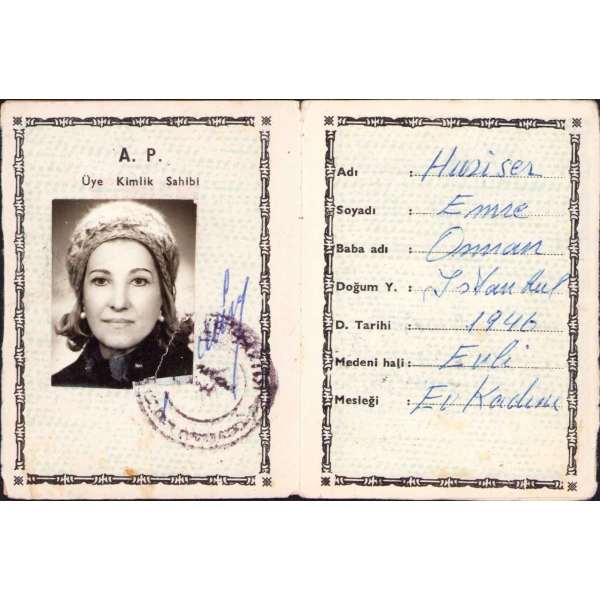 A. P.
Üye Kimlik Sahibi
Adı : Huriser
Soyadı : Emre
Baba adı : Osman
Doğum Y. : İstanbul
D. Tarihi : 1946
Medeni hali : Evli
Mesleği : Ev Kadını